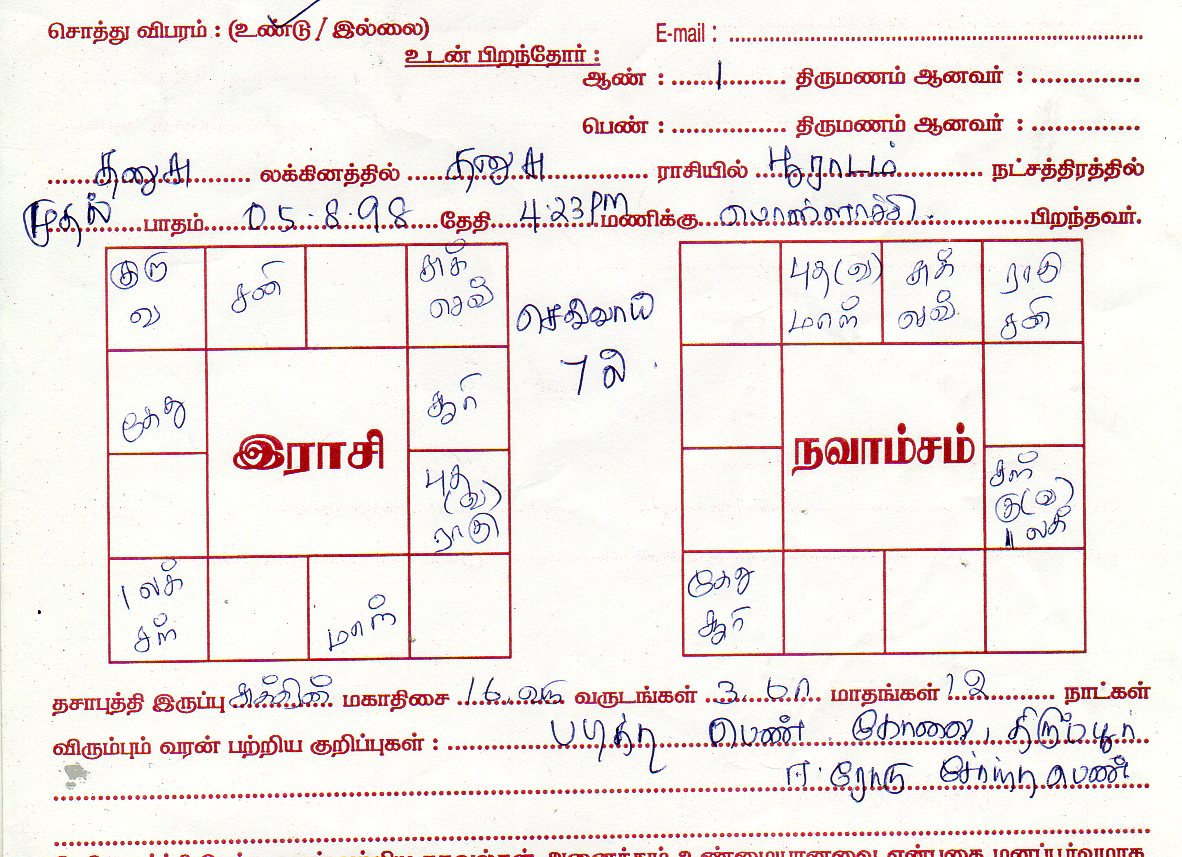 சொத்து விபரம் : (உண்டு / இல்லை)
E-mail :
உடன் பிறந்தோர் :
ஆண் : 1 திருமணம் ஆனவர் :
பெண் : திருமணம் ஆனவர் :
தனுசு லக்கினத்தில் தனுசு ராசியில் பூராடம் நட்சத்திரத்தில்
முதல் பாதம் 05.8.98 தேதி 4:23 PM மணிக்கு பொள்ளாச்சி பிறந்தவர்.
குரு
வ
சனி
சுக்
செவ்
கேது
இராசி
சூரி
புத
(வ)
ராகு
லக்
சந்
மாந்
செவ்வாய்
7 ல்
புத (வ)
மாந்
சுக்
செவ்
ராகு
சனி
நவாம்சம்
சந்
கு (வ)
லக்
கேது
சூரி
தசாபுத்தி இருப்பு சுக்கிரன் மகாதிசை 16 வருடங்கள் 3 மாதங்கள் 12 நாட்கள்
விரும்பும் வரன் பற்றிய குறிப்புகள் : படித்த பெண் கோவை, திருப்பூர்
ஈரோடு சேர்ந்த பெண்